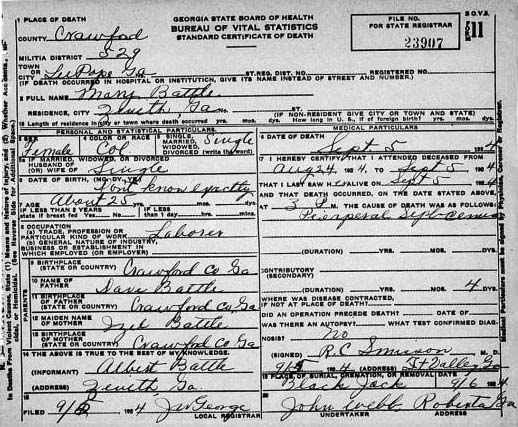 1 PLACE OF DEATH
COUNTY Crawford
MILITIA DISTRICT 529
TOWN OR CITY LeePope Ga ST. REG. DIST. NO. REGISTERED NO.
(IF DEATH OCCURRED IN HOSPITAL OR INSTITUTION, GIVE ITS NAME INSTEAD OF STREET AND NUMBER)
GEORGIA STATE BOARD OF HEALTH
BUREAU OF VITAL STATISTICS
STANDARD CERTIFICATE OF DEATH
FILE NO.
FOR STATE REGISTRAR
23907
2 FULL NAME Mary Battle
RESIDENCE, CITY Zenith Ga. ST.
(IF NON-RESIDENT GIVE CITY OR TOWN AND STATE)
Length of residence in city or town where death occurred yrs. mos. dys. How long in U. S., if of foreign birth? yrs. mos. dys.
PERSONAL AND STATISTICAL PARTICULARS
3 SEX Female
4 COLOR OR RACE Col
5 SINGLE, MARRIED, WIDOWED, DIVORCED (write the word) Single
5a IF MARRIED, WIDOWED, OR DIVORCED
HUSBAND OF (OR) WIFE OF Single
6 DATE OF BIRTH (MO., DAY, YR.) Dont know exactly
7 AGE About 25 YRS. MOS. DYS.
IF LESS THAN 2 YEARS state if breast fed Yes No
IF LESS THAN 1 day, hrs. min.
8 OCCUPATION
(a) TRADE, PROFESSION OR PARTICULAR KIND OF WORK Laborer
(b) GENERAL NATURE OF INDUSTRY, BUSINESS OR ESTABLISHMENT IN WHICH EMPLOYED (OR EMPLOYER)
9 BIRTHPLACE (STATE OR COUNTRY) Crawford Co Ga
PARENTS
10 NAME OF FATHER Dave Battle
11 BIRTHPLACE OF FATHER (STATE OR COUNTRY) Crawford Co, Ga
12 MAIDEN NAME OF MOTHER Battle
13 BIRTHPLACE OF MOTHER (STATE OR COUNTRY) Crawford Co Ga
14 THE ABOVE IS TRUE TO THE BEST OF MY KNOWLEDGE.
(INFORMANT) Albert Battle
(ADDRESS) Zenith Ga.
15 FILED 9/5 1924 George LOCAL REGISTRAR
MEDICAL PARTICULARS
16 DATE OF DEATH
Sept 5 1924
17 I HERBY CERTIFY THAT I ATTENDED DECEASED FROM
Aug 24 1924, TO Sept 5 1924
THAT I LAST SAW H ALIVE ON Sept 5 1924
AND THAT DEATH OCCURRED, ON THE DATE STATED ABOVE,
AT 3 P. M. THE CAUSE OF DEATH WAS AS FOLLOWS:
(DURATION) YRS. MOS. DYS.
CONTRIBUTORY (SECONDARY)
(DURATION) YRS. MOS. 4 DYS.
WHERE WAS DISEASE CONTRACTED, IF NOT AT PLACE OF DEATH?
DID AN OPERATION PRECEDE DEATH? DATE OF
WAS THERE AN AUTOPSY? WHAT TEST CONFIRMED DIAG.
No
(SIGNED) R.C. M. D.
9/5 1924 (ADDRESS) Ft Valley Ga
19 PLACE OF BURIAL, CREMATION, OR REMOVAL DATE
Black Jack 9/6 1924
20 John Webb Roberta Ga
UNDERTAKER ADDRESS